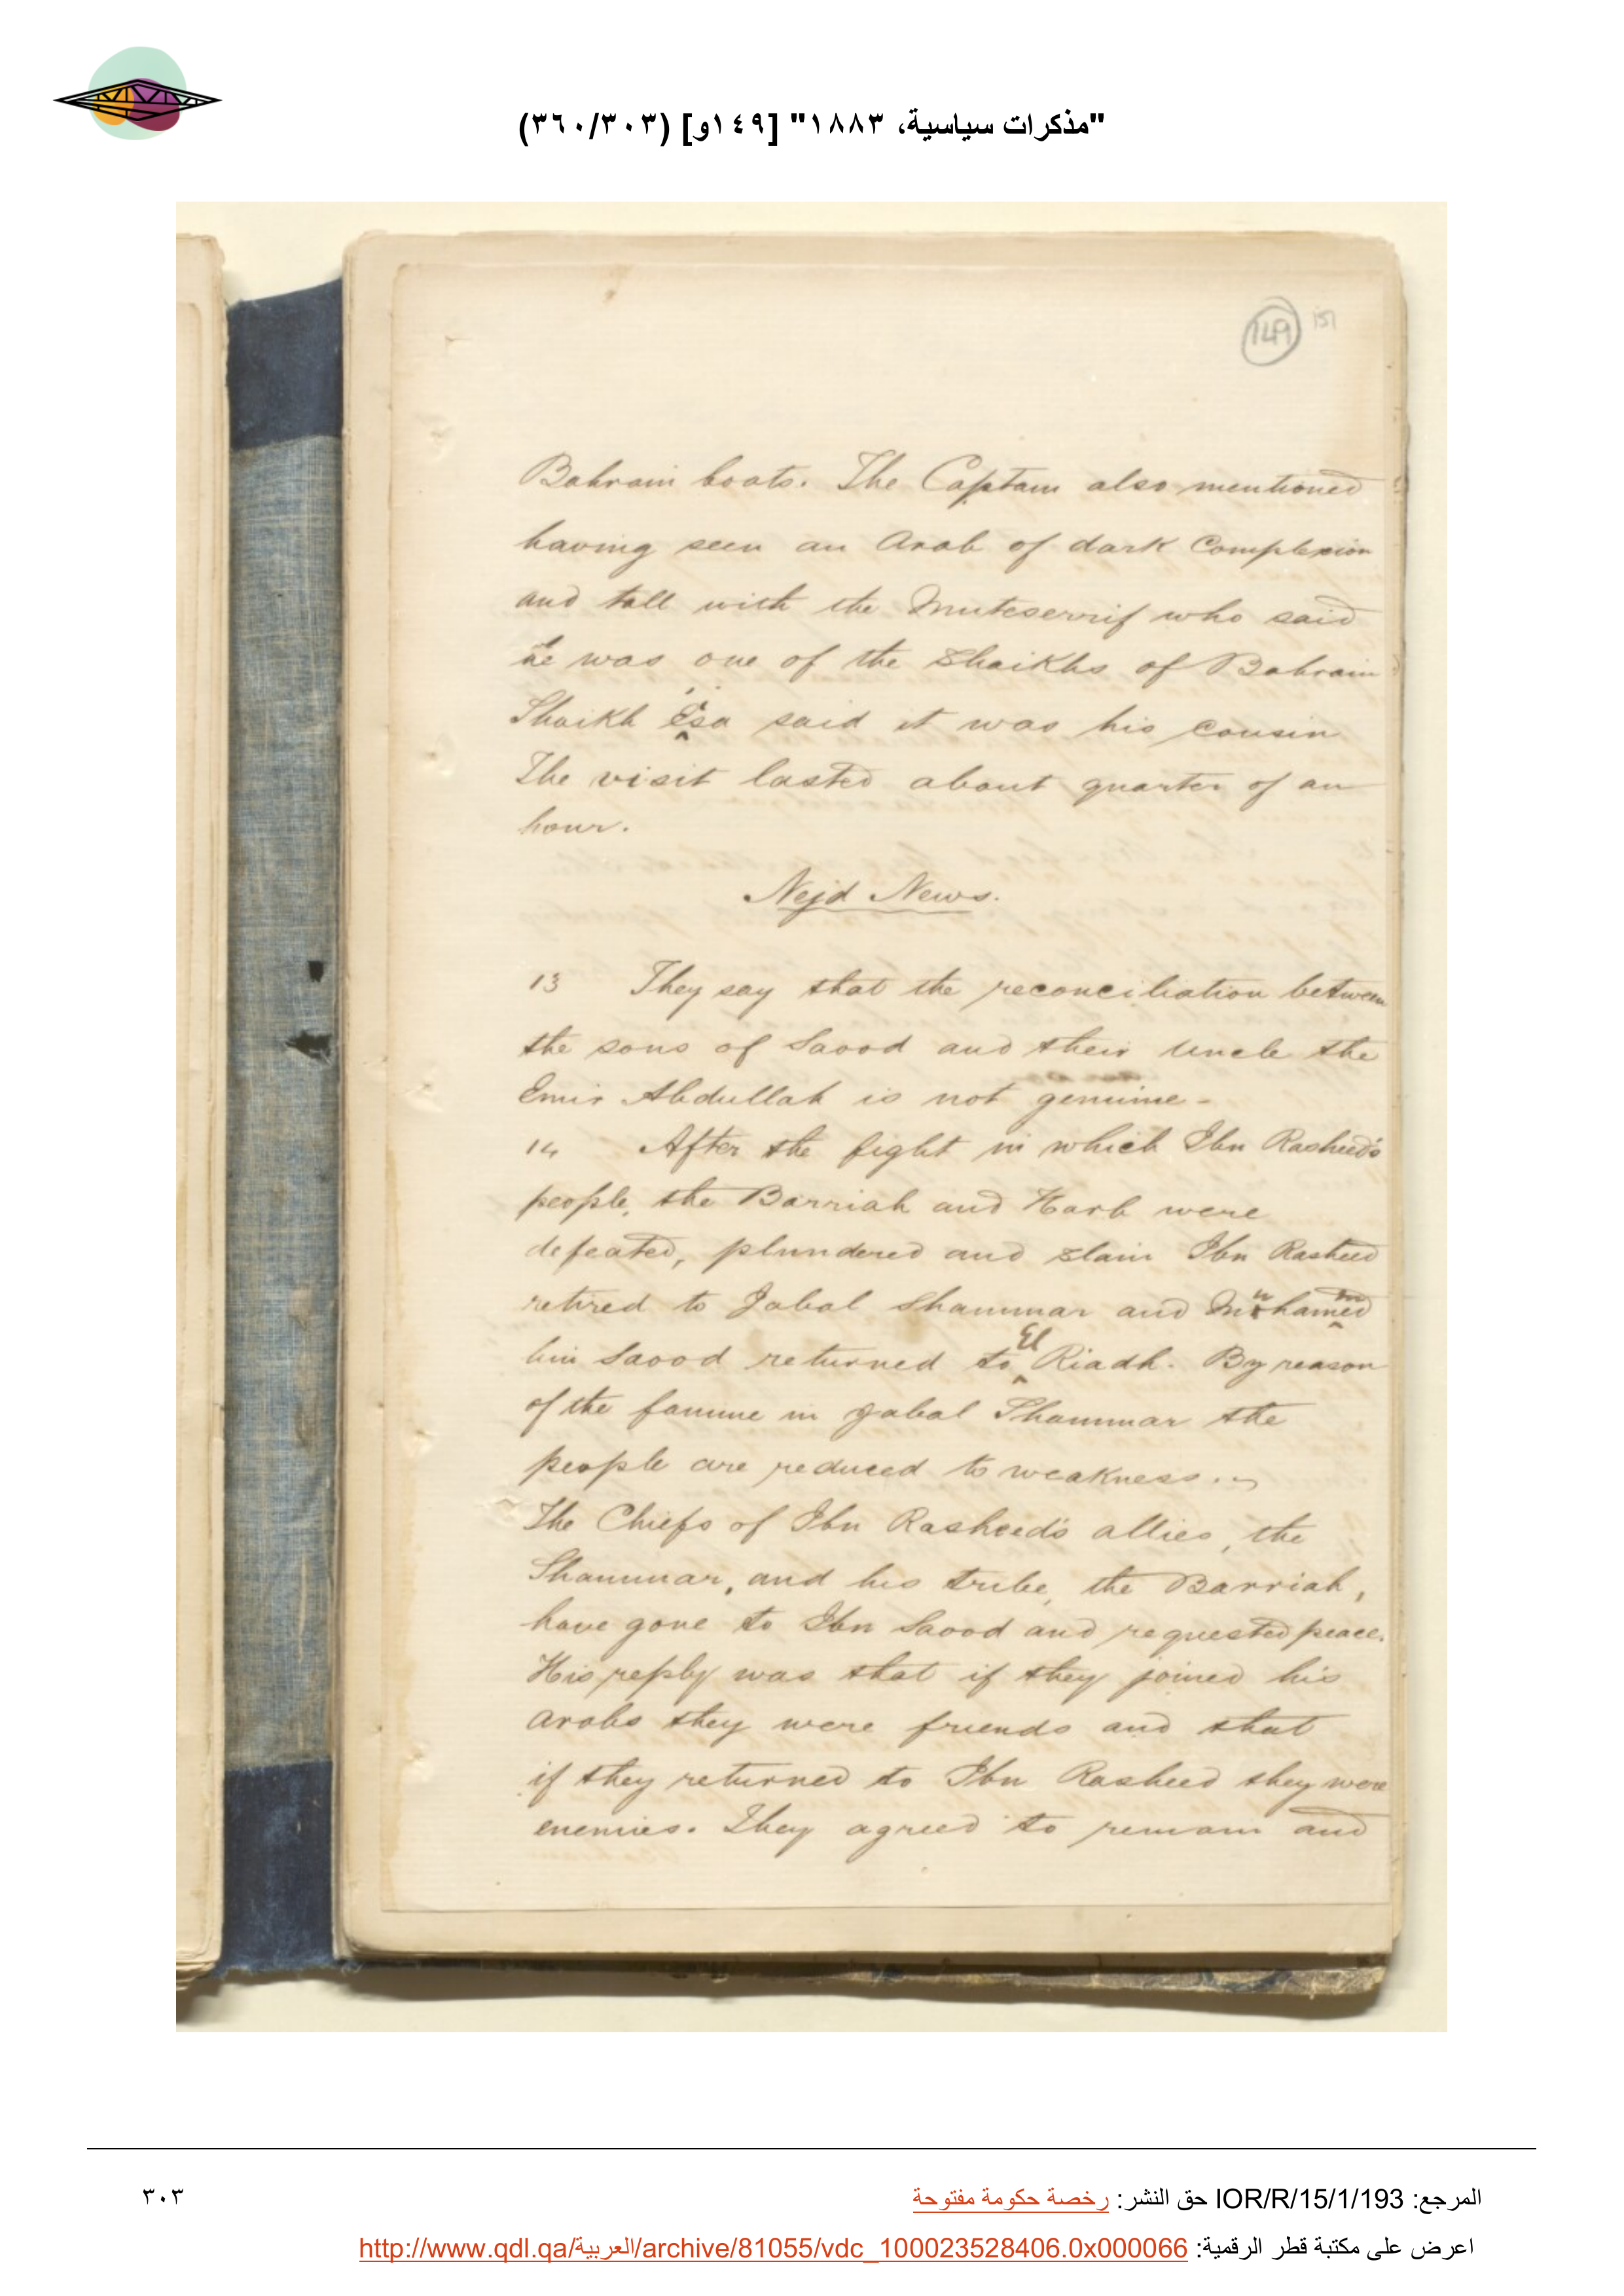 "مذكرات سياسية، ١٨٨٣" [١٤٩و] (٣٦٠/٣٠٣)
149 151
Bahrain boats. The Captain also mentioned
having seen an Arab of dark Complexion
and tall with the Muteserrif who said
he was one of the Shaikhs of Bahrain
Shaikh Esa said it was his cousin
The visit lasted about quarter of an
hour.
Nejd News.
13 They say that the reconciliation between
the sons of Saood and their Uncle the
Emir Abdullah is not genuine -
14 After the fight in which Ibn Rasheed's
people, the Barriah and Harb were
defeated, plundered and slain Ibn Rasheed
retired to Jabal Shammar and Muhammed
bin Saood returned to El Riadh. By reason
of the famine in Jabal Shammar the
people are reduced to weakness.
The Chiefs of Ibn Rasheed's allies, the
Shammar, and his tribe, the Barriah,
have gone to Ibn Saood and requested peace.
His reply was that if they joined his
Arabs they were friends and that
if they returned to Ibn Rasheed they were
enemies. They agreed to remain and
المرجع: IOR/R/15/1/193 حق النشر: رخصة حكومة مفتوحة
٣٠٣
اعرض على مكتبة قطر الرقمية: http://www.qdl.qa/العربية/archive/81055/vdc_100023528406.0x000066